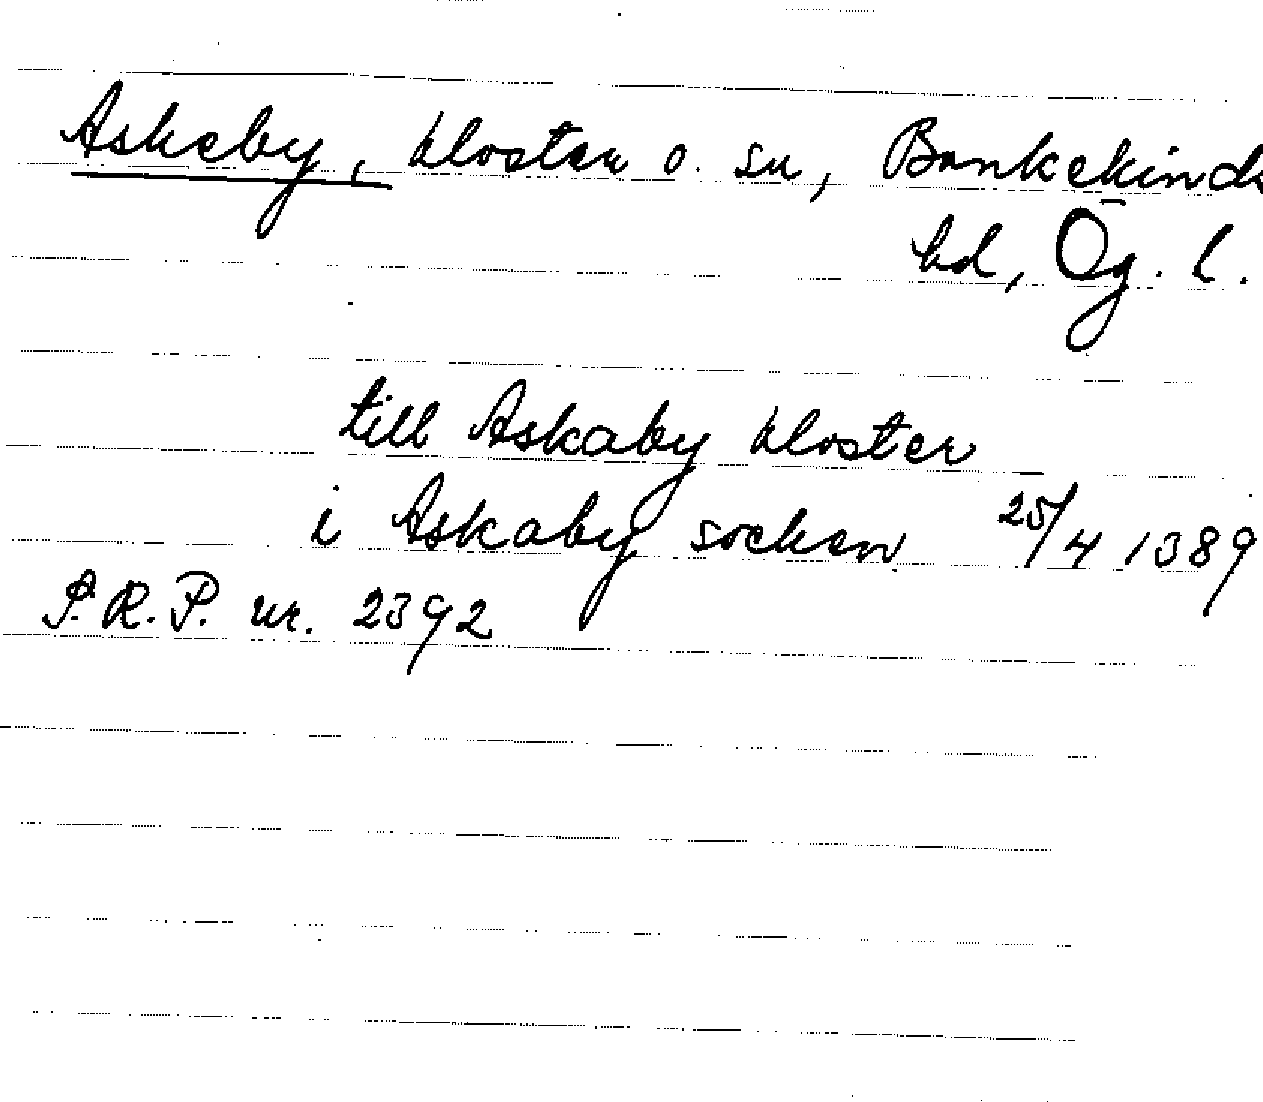 Askeby, kloster o. sn, Bankekinds
hd, Ög. l.
till Askaby kloster
i Askaby socken 25/4 1389
P.R.P. nr. 2392